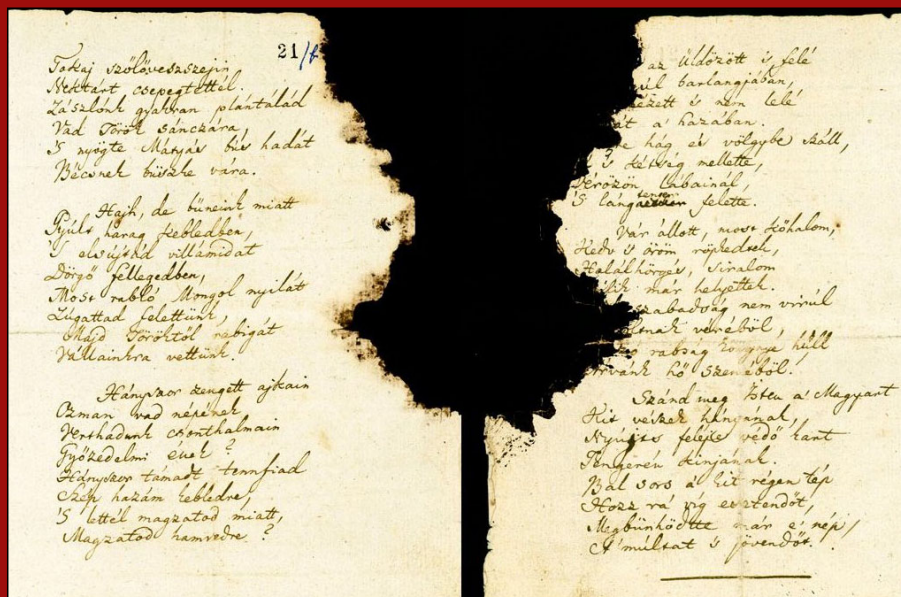 21/b
Tokaj szőlővesszejin
Nektárt csepegtettél.
Zászlónk gyakran plántálád
Vad Török sánczára,
'S nyögte Mátyás bús hadát
Bécsnek büszke vára.
Hajh, de bűneink miatt
Gyúlt harag kebledben,
'S elsújtád villámidat
Dörgő fellegedben,
Most rabló Mongol nyilát
Zúgattad felettünk,
Majd Töröktől rabigát
Vállainkra vettünk.
Hányszor zengett ajkain
Ozman vad népének
Vert hadunk csonthalmain
Győzedelmi ének?
Hányszor támadt tennfiad
Szép hazám kebledre,
'S lettél magzatod miatt,
Magzatod hamvedre?
az üldözött is felé
barlangjában,
nézett is nem lelé
a' hazában.
hág és völgybe száll,
's kétség mellette,
Vérözön lábainál,
'S lángtenger felette.
Vár állott, most kőhalom,
Kedv 's öröm röpkedtek,
Halálhörgés, siralom
már helyettek.
szabadság nem virúl
véréből,
rabság könnye hull
hő szeméből!
Szánd meg Isten a' Magyart
Kit vészek hányának,
Nyújts feléje védő kart
Tengerén kínjának.
Bal sors a' kit régen tép
Hozz rá víg esztendőt,
Megbűnhődte már e' nép
A' múltat 's jövendőt.